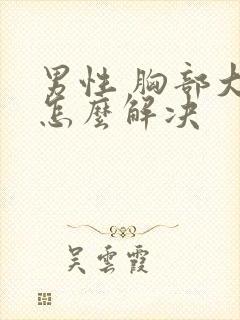 男性 胸部大
怎麼解决
吴雲霞